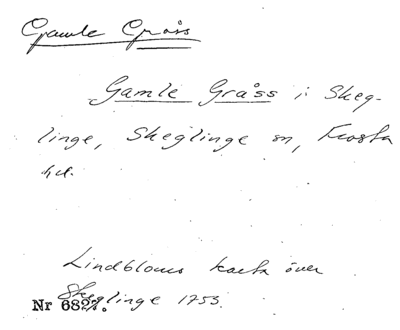 Gamle Gråss
Gamle Gråss i Skeg-
linge, Skeglinge sn, Frosta
hd.
Lindbloms karta över
Skeglinge 1753.
Nr 6827.